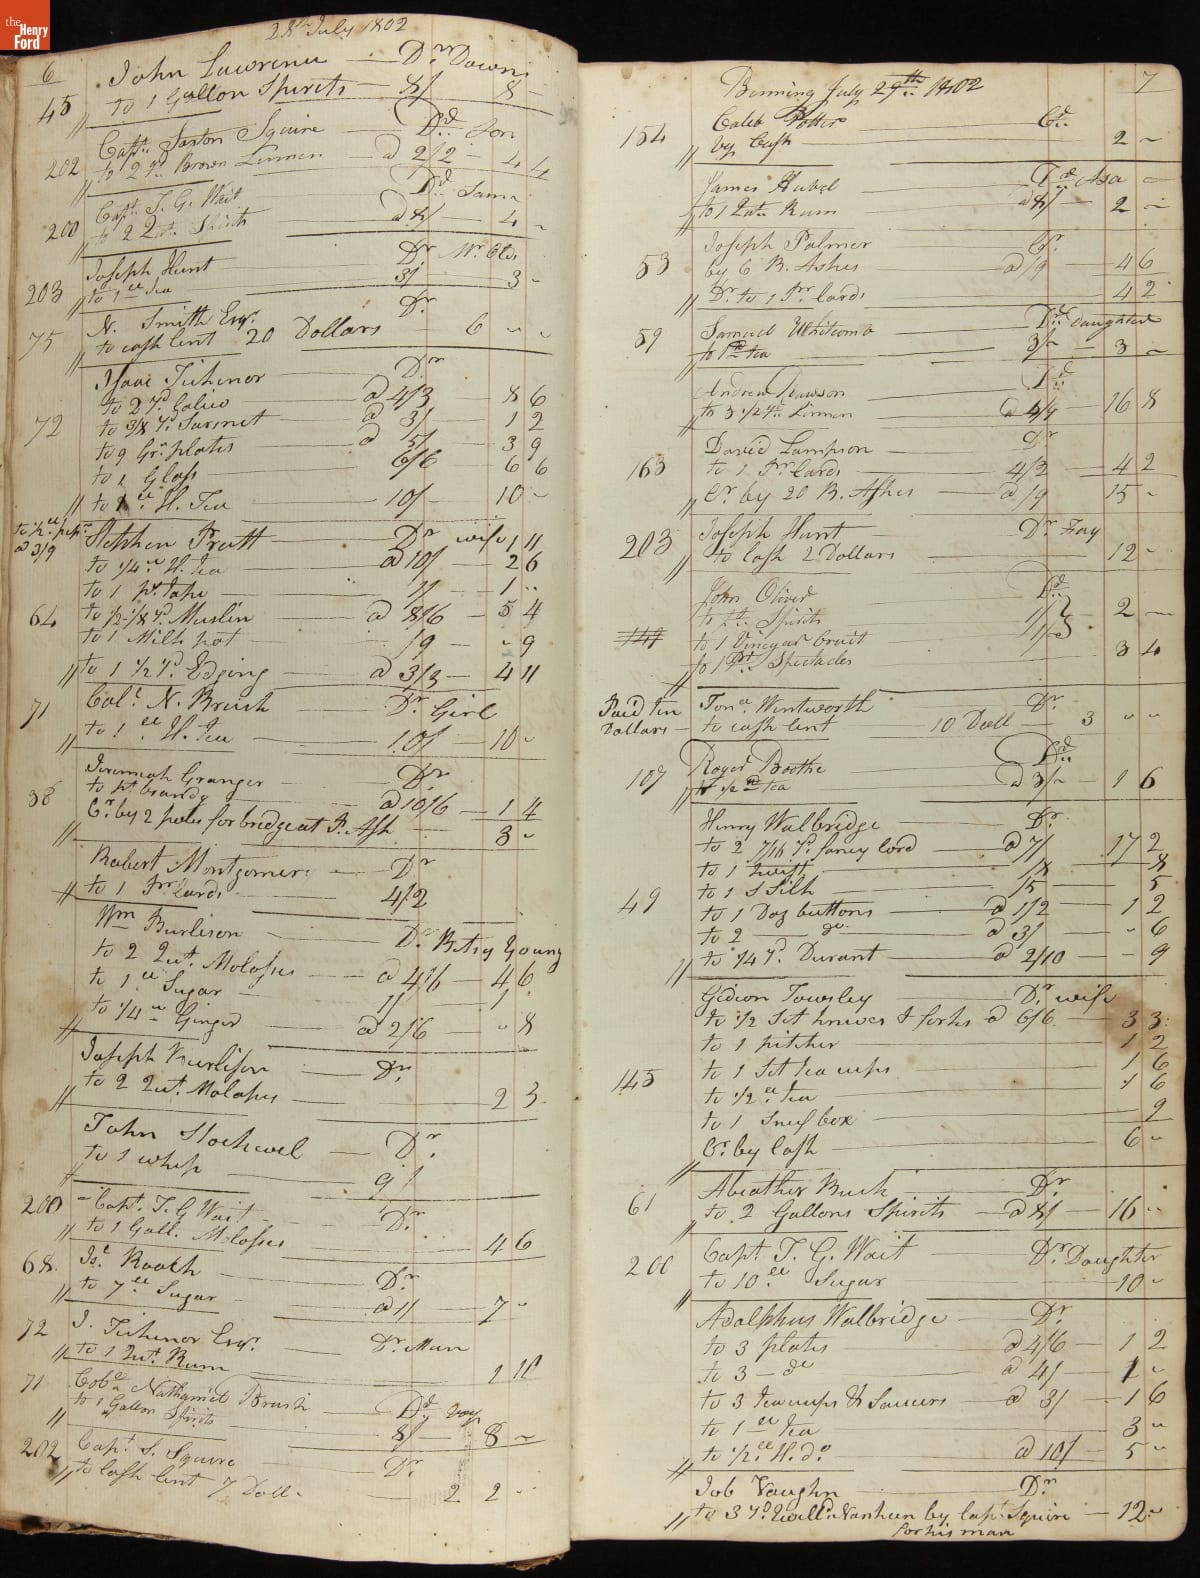 the
Henry
Ford
28th July 1802
6
John Lawrence Dr Down
45 to 1 Gallon Spirits 8/ 8 -
Capt. Saxton Squire Dd Son
202 to 2 yd Brown Linnen @ 2/2 - 4 4
Capt. T. G. Wait Dd Same
200 to 2 Qts Spirits @ 8/ 4 -
Joseph Hunt Dr Mr Olds
203 to 1 ee Tea 3/ 3 -
N. Smith Esqr. Dr
75 to cash lent 20 Dollars 6 - -
Isaac Tichenor Dr
to 2 Yd Calico @ 4/3 8 6
72 to 3/8 Yd Sarsnet @ 3/ 1 2
to 9 Gr. plates @ 5/ 3 9
to 1 Glass 6/6 6 6
to 1 ee H. Tea 10/ 10 -
to 1/2 ee pepr
@ 3/9
Stephen Pratt Dr wife 1 11
to 1/4 ee H. Tea @ 10/ 2 6
to 1 ps tape 1/ 1 -
64 to 1/2-1/8 Yd Muslin @ 8/6 5 4
to 1 Milk pot /9 - 9
to 1 1/2 Yd Edging @ 3/3 4 11
71 Col. N. Brush Dr Girl
to 1 ee H. Tea 10/ 10 -
Jeremiah Granger Dr
38 to pt brandy @ 10/6 1 4
Cr by 2 poles for bridge at P. Ash 3 -
Robert Montgomery Dr
to 1 Pr Cards 4/2
Wm Burlison Dr Betsy Young
to 2 Qut. Molases @ 4/6 4 6
to 1 ee Sugar 1/ 1
to 1/4 ee Ginger @ 2/6 - 8
Joseph Burlison Dr.
to 2 Qut. Molases 2 3
John Stockwel Dr
to 1 whip 9/
200 Capt. T. G Wait Dr.
to 1 Gall. Molases 4 6
68 Is. Roach Dr
to 7 ee Sugar @ 1/ 7 -
72 I. Tichenor Esqr. Dr Man
to 1 Qut. Rum 1 10
71 Nathaniel Brush Dd boy
to 1 Gallon Spirits 8/ 8 -
202 Capt. S. Squire Dr.
to Cash lent 7 Doll. 2 2 -
Benning July 29th 1802 7
154 Caleb Potter Cr.
by Cash 2 -
James Hubel Dd Asa
to 1 Qut. Rum @ 8/ 2 -
Joseph Palmer Cr
53 by 6 B. Ashes @ /9 4 6
Dr to 1 Pr Cards 4 2
59 Samuel Whitcomb Dr Daughter
to 1 ee tea 3/ - 3 -
Andrew Dawson Dd
to 3 1/2 Yd Linnen @ 4/9 16 8
David Lampson Dr
163 to 1 Pr Cards 4/2 4 2
Cr by 20 B. Ashes @ /9 15 -
203 Joseph Hunt Dr Fay
to Cash 2 Dollars 12 -
John Oliver Dd
to Qt. Spirits 1/ 2 -
149 to 1 Vinegar Cruit 1/3
to 1 Pr Spectacles 3 4
Paid ten Jona Wentworth Dr
Dollars to cash lent 10 Doll 3 - -
107 Roger Boothe Dd
to 1/2 ee tea @ 3/ 1 6
Henry Walbridge Dr
to 2 7/16 Yd fancy Cord @ 7/ 17 2
to 1 Twist /8 8
to 1 S Silk /5 5
49 to 1 Doz buttons @ 1/2 1 2
to 2 do @ 3/ - 6
to 1/4 Yd Durant @ 2/10 - 9
Gideon Towsley Dr wife
to 1/2 Set knives & forks @ 6/6 3 3
to 1 pitcher 1 2
145 to 1 Set tea cups 1 6
to 1/2 ee tea 1 6
to 1 Snuf box 9
Cr by Cash 6 -
61 Abeather Buck Dr
to 2 Gallons Spirits @ 8/ 16 -
200 Capt T. G. Wait Dr Daughter
to 10 ee Sugar 10 -
Adolphus Walbridge Dr
to 3 plates @ 4/6 1 2
to 3 - do @ 4/ 1 -
to 3 tea cups & Saucers @ 3/ 1 6
to 1 ee tea 3 -
to 1/2 ee H. do @ 10/ 5 -
Job Vaughn Dr
to 3 Yd Nankeen by Capt. Squire 12 -
for his man